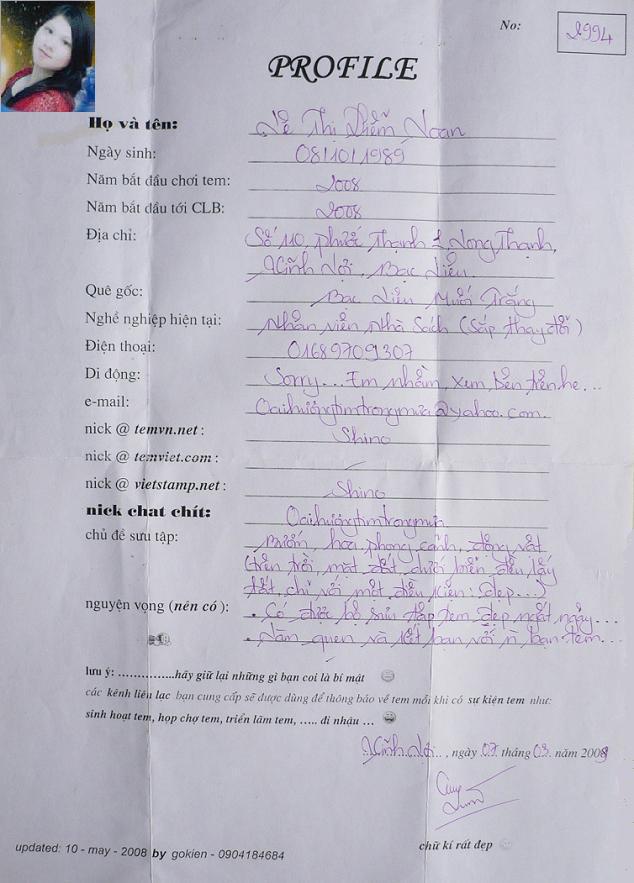 No: 2994
PROFILE
Họ và tên: Lê Thị Diễm Loan
Ngày sinh: 08/10/1989
Năm bắt đầu chơi tem: 2008
Năm bắt đầu tới CLB: 2008
Địa chỉ: Số 110, phước Thạnh 1, Long Thạnh,
Vĩnh Lợi, Bạc Liêu.
Quê gốc: Bạc Liêu Muối Trắng
Nghề nghiệp hiện tại: Nhân viên Nhà Sách (Sắp thay đổi)
Điện thoại: 01689709307
Di động: Sorry... Em nhầm, xem bên trên he...
e-mail: Oaihuongtimtrongmua@yahoo.com.
nick @ temvn.net : Shino
nick @ temviet.com :
nick @ vietstamp.net : Shino
nick chat chít: Oaihuongtimtrongmua
chủ đề sưu tập: Bướm, hoa, phong cảnh, động vật
(trên trời, mặt đất, dưới biển đều lấy
tất, chỉ với một điều kiện: đẹp...)
nguyện vọng (nén có ): . Có được bộ sưu tập tem đẹp ngất ngây...
. Làm quen và kết bạn với n bạn tem...
lưu ý: ...............hãy giữ lại những gì bạn coi là bí mật
các kênh liên lạc bạn cung cấp sẽ được dùng để thông báo về tem mỗi khi có sự kiện tem như:
sinh hoạt tem, họp chợ tem, triển lãm tem, ….. đi nhậu …
Vĩnh Lợi, ngày 07 tháng 03 năm 2009
chữ kí rất đẹp
updated: 10 - may - 2008 by gokien - 0904184684